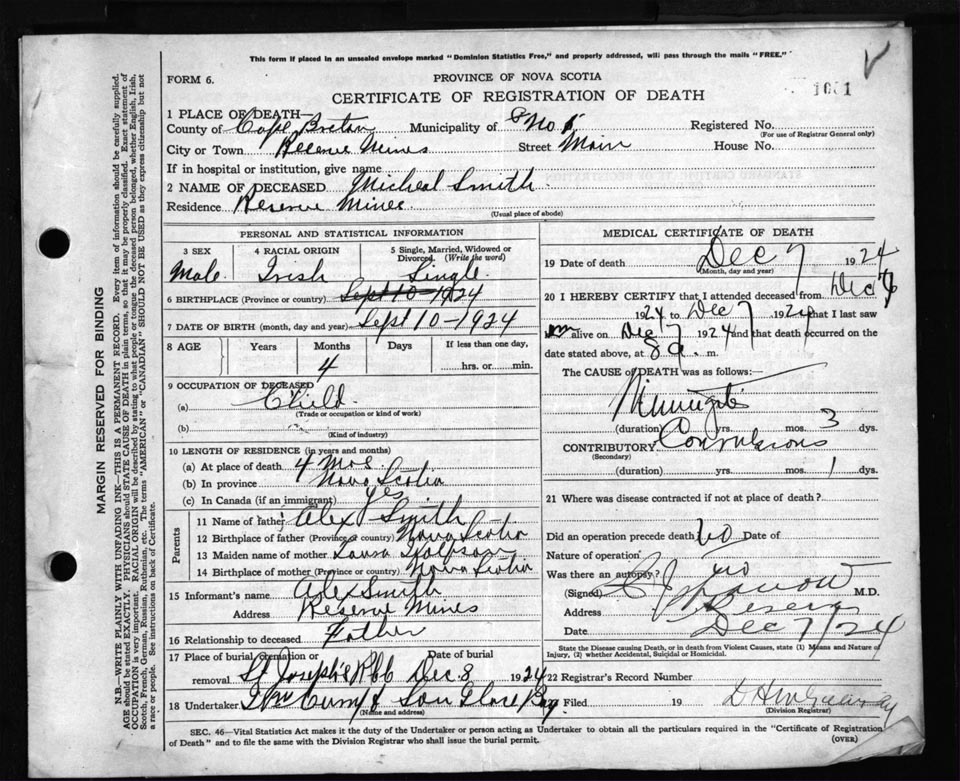 This form if placed in an unsealed envelope marked "Dominion Statistics Free," and properly addressed, will pass through the mails "FREE."
FORM 6.
PROVINCE OF NOVA SCOTIA
CERTIFICATE OF REGISTRATION OF DEATH
1 PLACE OF DEATH—
County of Cape Breton Municipality of No Registered No.
(For use of Registrar General only)
City or Town Reserve Mines Street Main House No.
If in hospital or institution, give name
2 NAME OF DECEASED Micheal Smith
Residence Reserve Mines
(Usual place of abode)
PERSONAL AND STATISTICAL INFORMATION
3 SEX 4 RACIAL ORIGIN 5 Single, Married, Widowed or Divorced (Write the word)
Male Irish Single
6 BIRTHPLACE (Province or country) Sept 10-1924
7 DATE OF BIRTH (month, day and year) Sept 10-1924
8 AGE Years Months Days If less than one day,
4 hrs. or min.
9 OCCUPATION OF DECEASED
(a) Child
(Trade or occupation or kind of work)
(b)
(Kind of industry)
10 LENGTH OF RESIDENCE (in years and months)
(a) At place of death 4 Mos
(b) In province Nova Scotia
(c) In Canada (if an immigrant) yes
Parents
11 Name of father Alex Smith
12 Birthplace of father (Province or country) Nova Scotia
13 Maiden name of mother Laura
14 Birthplace of mother (Province or country) Nova Scotia
15 Informant's name Alex Smith
Address Reserve Mines
16 Relationship to deceased Father
17 Place of burial, cremation or removal Date of burial
St Joseph's Dec 8 1924
18 Undertaker & Son Glace Bay
(Name and address)
MEDICAL CERTIFICATE OF DEATH
19 Date of death Dec 7 1924
(Month, day and year)
20 I HEREBY CERTIFY that I attended deceased from Dec
1924 to Dec 7 1924 that I last saw
alive on Dec 7 1924 and that death occurred on the
date stated above, at 8 a. m.
The CAUSE OF DEATH was as follows:—
(duration) yrs. mos. 3 dys.
CONTRIBUTORY Convulsions
(Secondary)
(duration) yrs. mos. 1 dys.
21 Where was disease contracted if not at place of death?
Did an operation precede death? No Date of
Nature of operation
Was there an autopsy? no
(Signed) M.D.
Address Reserve
Date Dec 7/24
State the Disease causing Death, or in death from Violent Causes, state (1) Means and Nature of
Injury, (2) whether Accidental, Suicidal or Homicidal.
22 Registrar's Record Number
Filed 19
(Division Registrar)
SEC. 46—Vital Statistics Act makes it the duty of the Undertaker or person acting as Undertaker to obtain all the particulars required in the "Certificate of Registration
of Death" and to file the same with the Division Registrar who shall issue the burial permit. (OVER)
MARGIN RESERVED FOR BINDING
N.B.—WRITE PLAINLY WITH UNFADING INK—THIS IS A PERMANENT RECORD. Every item of information should be carefully supplied.
AGE should be stated EXACTLY. PHYSICIANS should STATE CAUSE OF DEATH in plain terms, so that it may be properly classified. Exact statement of
OCCUPATION is very important. RACIAL ORIGIN will be described by stating to what people or tongue the deceased person belonged, whether English, Irish,
Scotch, French, German, Russian, Ruthenian, etc. The terms "AMERICAN" or "CANADIAN" SHOULD NOT BE USED as they express citizenship but not
a race or people. See instructions on back of Certificate.